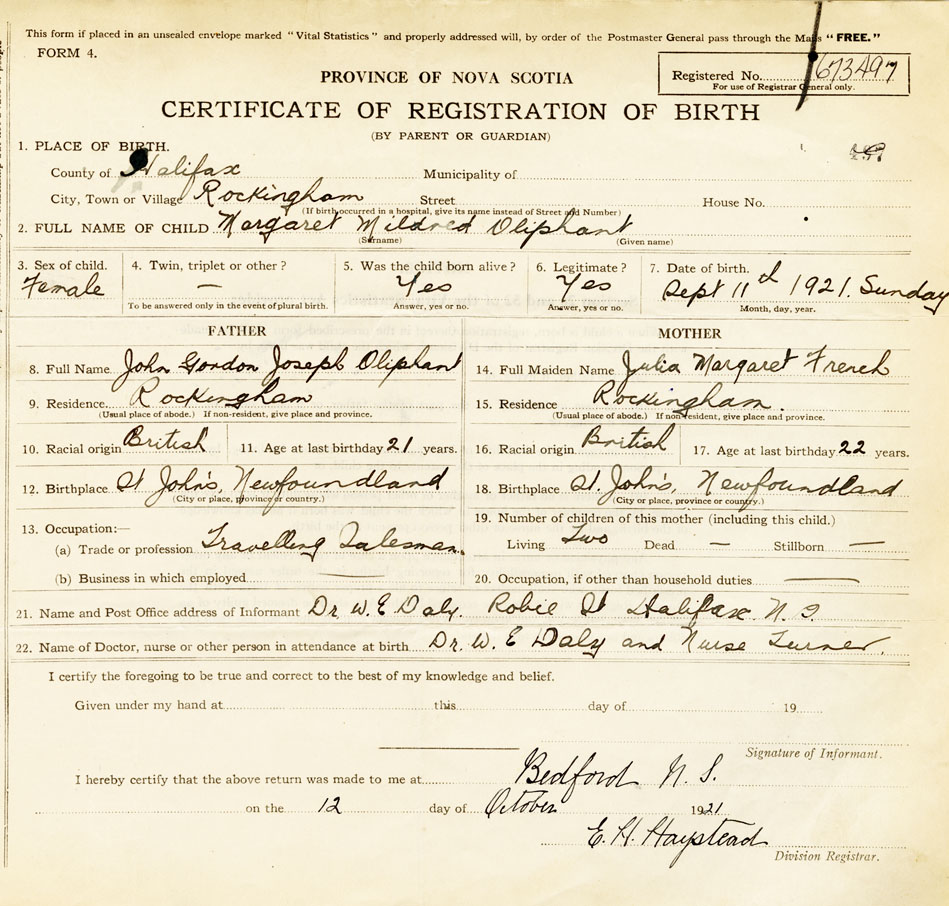 This form if placed in an unsealed envelope marked "Vital Statistics" and properly addressed will, by order of the Postmaster General pass through the Mails "FREE."
FORM 4.
PROVINCE OF NOVA SCOTIA
Registered No. 673497
For use of Registrar General only.
CERTIFICATE OF REGISTRATION OF BIRTH
(BY PARENT OR GUARDIAN)
1. PLACE OF BIRTH.
County of Halifax Municipality of
City, Town or Village Rockingham Street House No.
(If birth occurred in a hospital, give its name instead of Street and Number)
2. FULL NAME OF CHILD Margaret Mildred Oliphant
(Surname) (Given name)
3. Sex of child. 4. Twin, triplet or other? 5. Was the child born alive? 6. Legitimate? 7. Date of birth.
Female — Yes Yes Sept 11th 1921. Sunday
To be answered only in the event of plural birth. Answer, yes or no. Answer, yes or no. Month, day, year.
FATHER
8. Full Name John Gordon Joseph Oliphant
9. Residence Rockingham
(Usual place of abode.) If non-resident, give place and province.
10. Racial origin British 11. Age at last birthday 21 years.
12. Birthplace St John's, Newfoundland
(City or place, province or country.)
13. Occupation:—
(a) Trade or profession Travelling Salesman.
(b) Business in which employed —
MOTHER
14. Full Maiden Name Julia Margaret French
15. Residence Rockingham.
(Usual place of abode.) If non-resident, give place and province.
16. Racial origin British 17. Age at last birthday 22 years.
18. Birthplace St. John's, Newfoundland
(City or place, province or country.)
19. Number of children of this mother (including this child.)
Living Two Dead — Stillborn —
20. Occupation, if other than household duties —
21. Name and Post Office address of Informant Dr. W. E Daly. Robie St Halifax N.S.
22. Name of Doctor, nurse or other person in attendance at birth Dr. W. E Daly and Nurse Turner.
I certify the foregoing to be true and correct to the best of my knowledge and belief.
Given under my hand at this day of 19
Signature of Informant.
I hereby certify that the above return was made to me at Bedford N. S.
on the 12 day of October 1921
E. H. Haystead
Division Registrar.